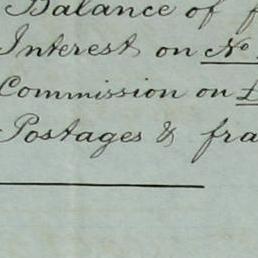 Balance of
Interest on No
Commission on £
Postages & fra